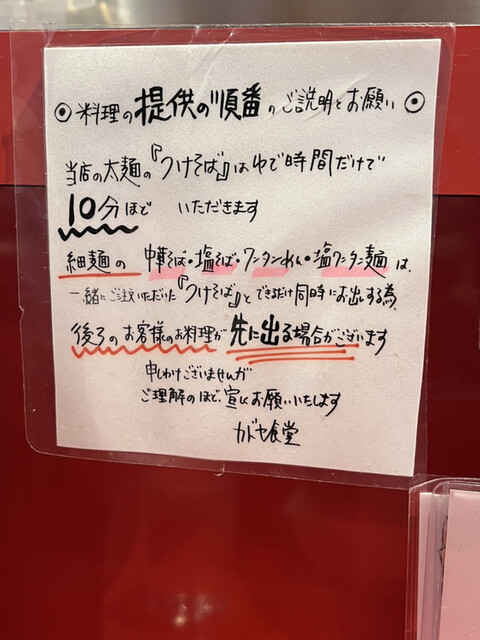 ◉料理の提供の順番のご説明とお願い◉
当店の太麺の『つけそば』はゆで時間だけで
10分ほど いただきます
細麺の 中華そば・塩そば・ワンタンめん・塩ワンタン麺は、
一緒にご注文いただいた『つけそば』とできるだけ同時にお出しする為、
後ろのお客様のお料理が先に出る場合がございます
申しわけございませんが
ご理解のほど、宜しくお願いいたします
カドヤ食堂